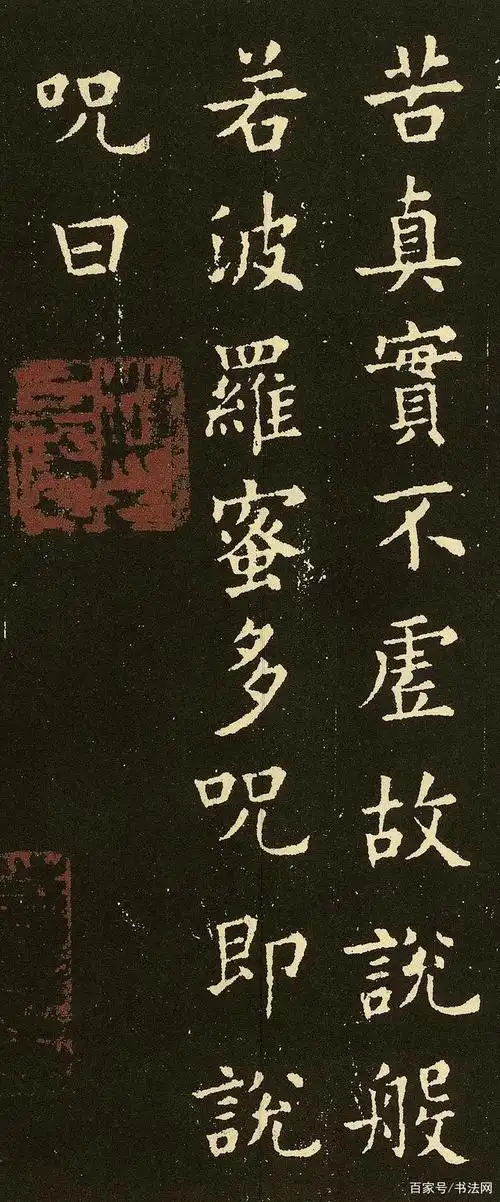 苦真實不虛故說般
若波羅蜜多咒即說
咒曰
百家号/书法网